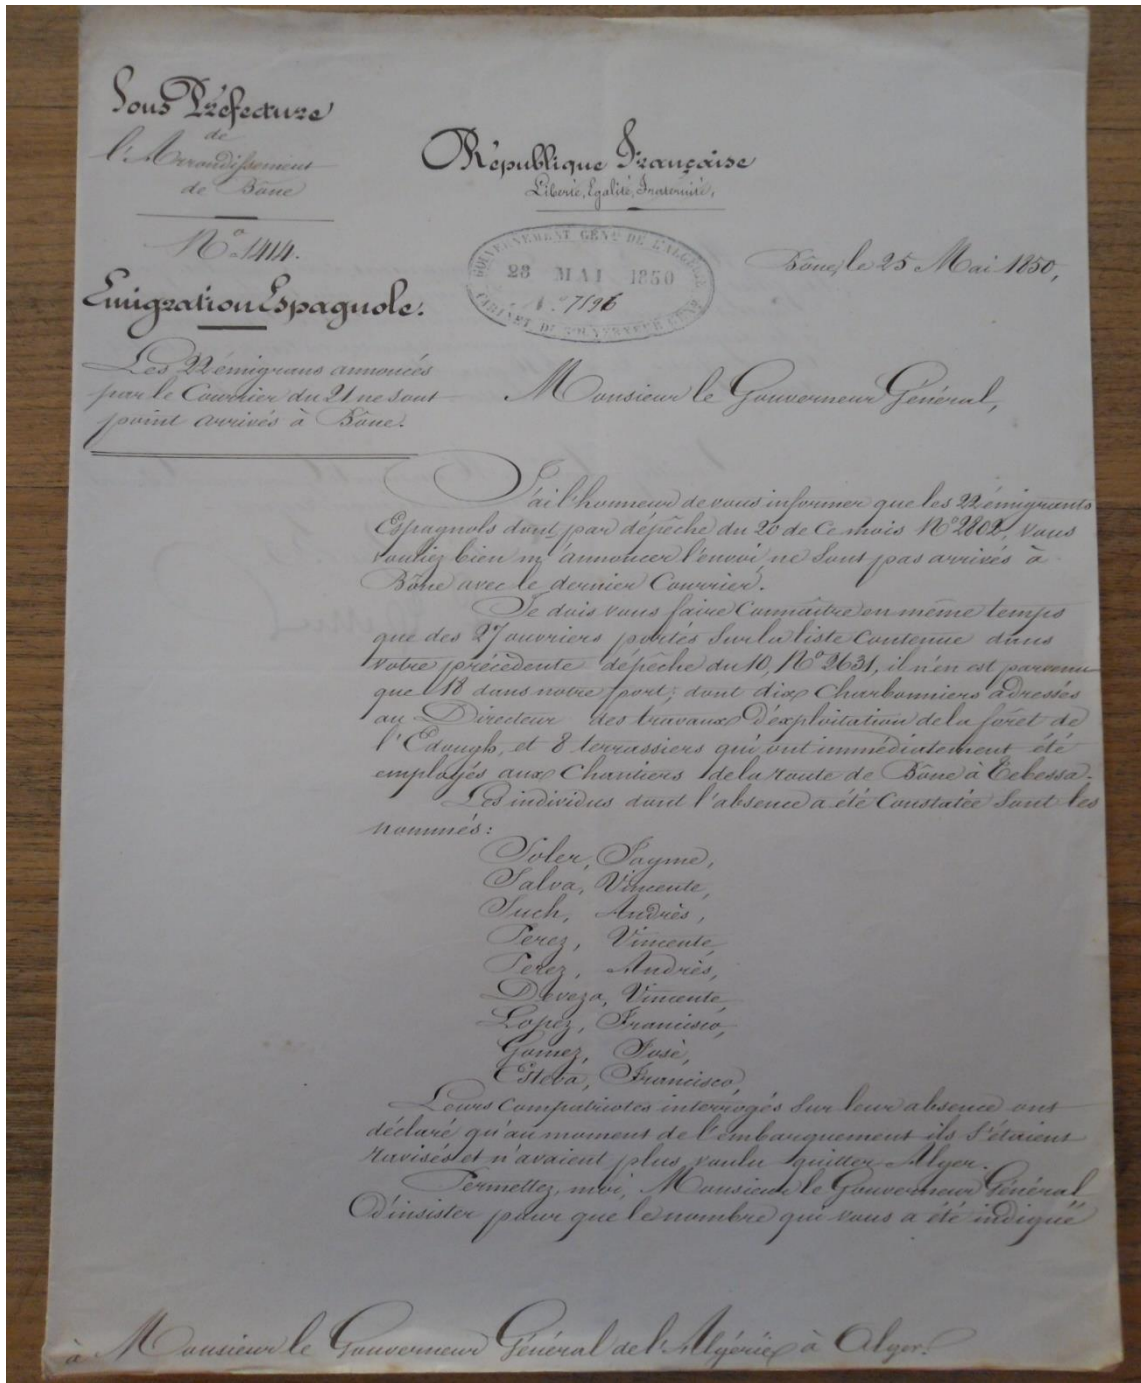 Sous Préfecture
de
l'Arrondissement
de Bône
N° 1414.
Emigration Espagnole.
Les 22 émigrans annoncés
par le Courrier du 21 ne sont
point arrivés à Bône.
République Française
Liberté, Egalité, Fraternité.
GOUVERNEMENT GÉNAL DE L'ALGÉRIE
28 MAI 1850
N° 7196
CABINET DU GOUVERNEUR GÉNAL
Bône, le 25 Mai 1850,
Monsieur le Gouverneur Général,
J'ai l'honneur de vous informer que les 22 émigrants
Espagnols dont par dépêche du 20 de ce mois N° 2802, vous
vouliez bien m'annoncer l'envoi, ne sont pas arrivés à
Bône avec le dernier Courrier.
Je dois vous faire Connaître en même temps
que des 27 ouvriers portés sur la liste Contenue dans
votre précédente dépêche du 10, N° 2631, il n'en est parvenu
que 18 dans notre port, dont dix Charbonniers adressés
au Directeur des travaux D'exploitation de la forêt de
l'Edough, et 8 terrassiers qui ont immédiatement été
employés aux Chantiers de la route de Bône à Tebessa.
Les individus dont l'absence a été Constatée sont les
nommés:
Soler, Jayme,
Salva, Vincente,
Such, Andrès,
Perez, Vincente,
Perez, Andrès,
Deveza, Vincente,
Lopez, Francisco,
Gomez, José,
Esteva, Francisco,
Leurs Compatriotes interrogés sur leur absence ont
déclaré qu'au moment de l'embarquement ils s'étaient
ravisés et n'avaient plus voulu quitter Alger.
Permettez, moi, Monsieur le Gouverneur Général
D'insister pour que le nombre qui vous a été indiqué
à Monsieur le Gouverneur Général de l'Algérie à Alger.